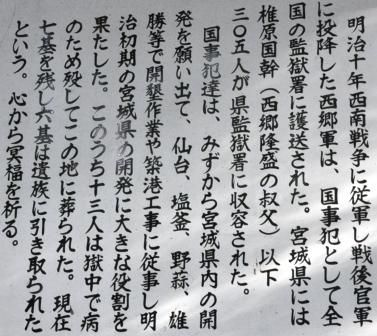 明治十年西南戦争に従軍し戦後官軍
に投降した西郷軍は、国事犯として全
国の監獄署に護送された。宮城県には
椎原国幹（西郷隆盛の叔父）以下
三〇五人が県監獄署に収容された。
国事犯達は、みずから宮城県内の開
発を願い出て、仙台、塩釜、野蒜、雄
勝等で開墾作業や築港工事に従事し明
治初期の宮城県の開発に大きな役割を
果たした。このうち十三人は獄中で病
のため死してこの地に葬られた。現在
七基を残し六基は遺族に引き取られた
という。心から冥福を祈る。